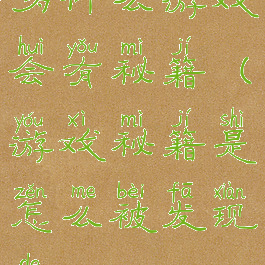 为什么游戏
huì yǒu mì jí
会有秘籍(
yóu xì mì jí shì
游戏秘籍是
zěn me bèi fā xiàn
怎么被发现
de